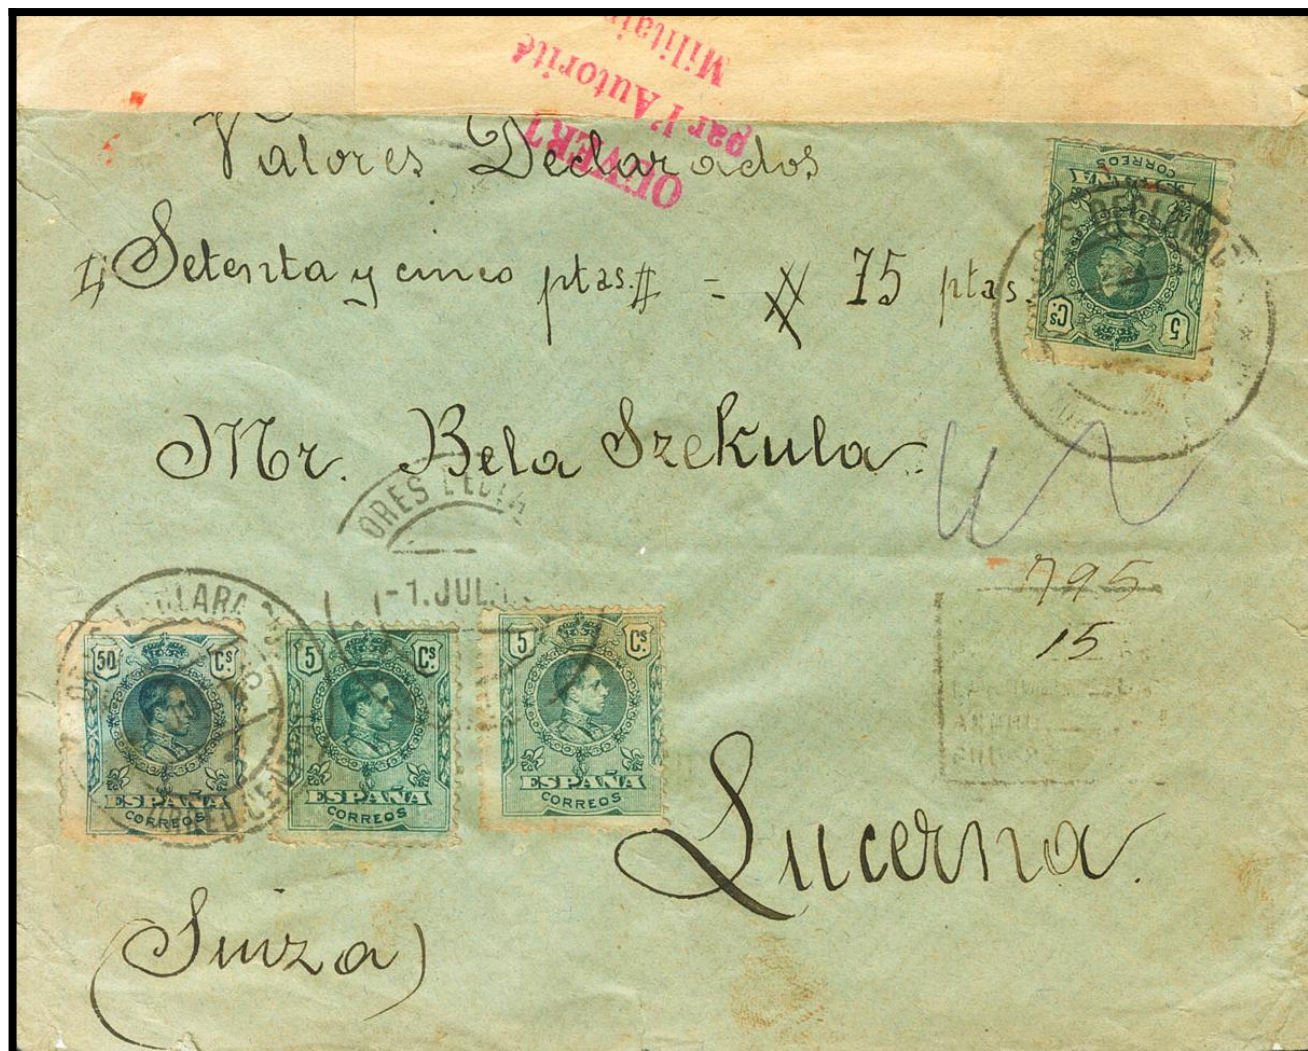 OUVERT
par l'Autorité
Valores Declarados
# Setenta y cinco ptas.# = # 75 ptas.
5 Cs
ESPAÑA
CORREOS
Mr. Bela Szekula.
795
15
-1.JUL.1
50 Cs.
ESPAÑA
CORREOS
5 Cs.
ESPAÑA
CORREOS
5 Cs.
ESPAÑA
CORREOS
Lucerna.
(Suiza)